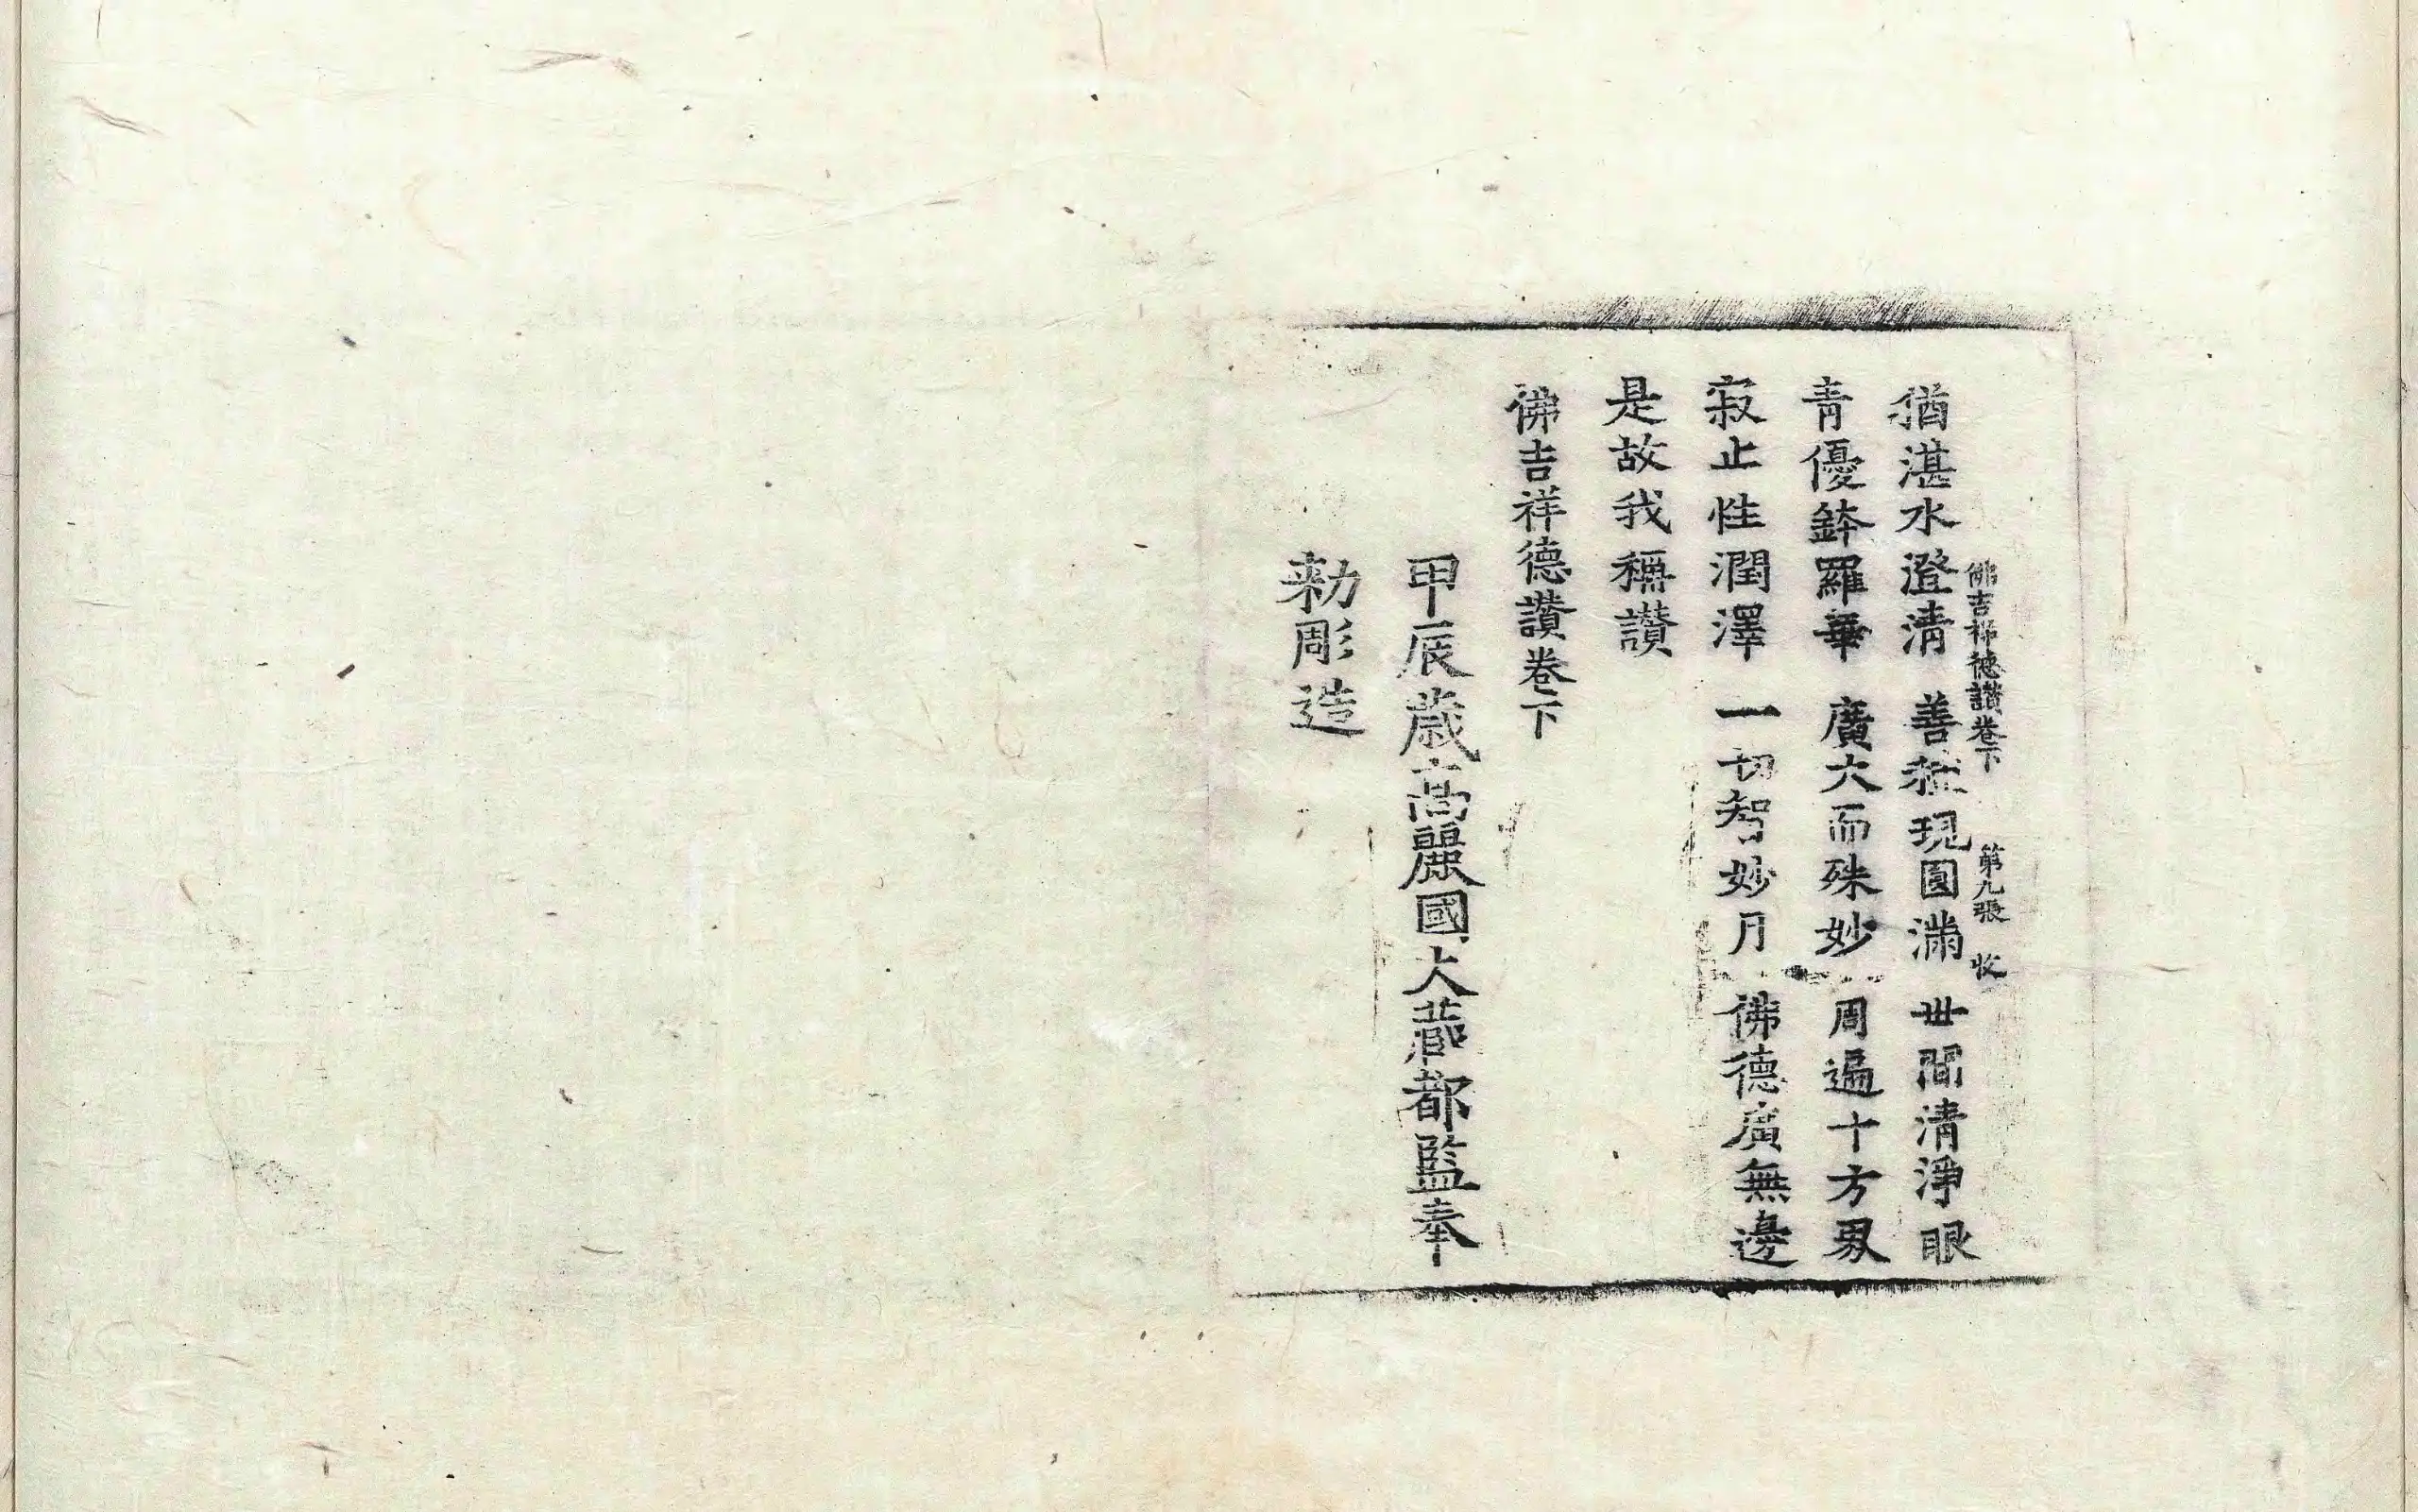 佛吉祥德讚卷下 第九張 收
猶湛水澄清 善現圓滿 世間清淨眼
青優鉢羅華 廣大而殊妙 周遍十方界
寂止性潤澤 一切智妙月 佛德廣無邊
是故我稱讚
佛吉祥德讚卷下
甲辰歲高麗國大藏都監奉
勑彫造